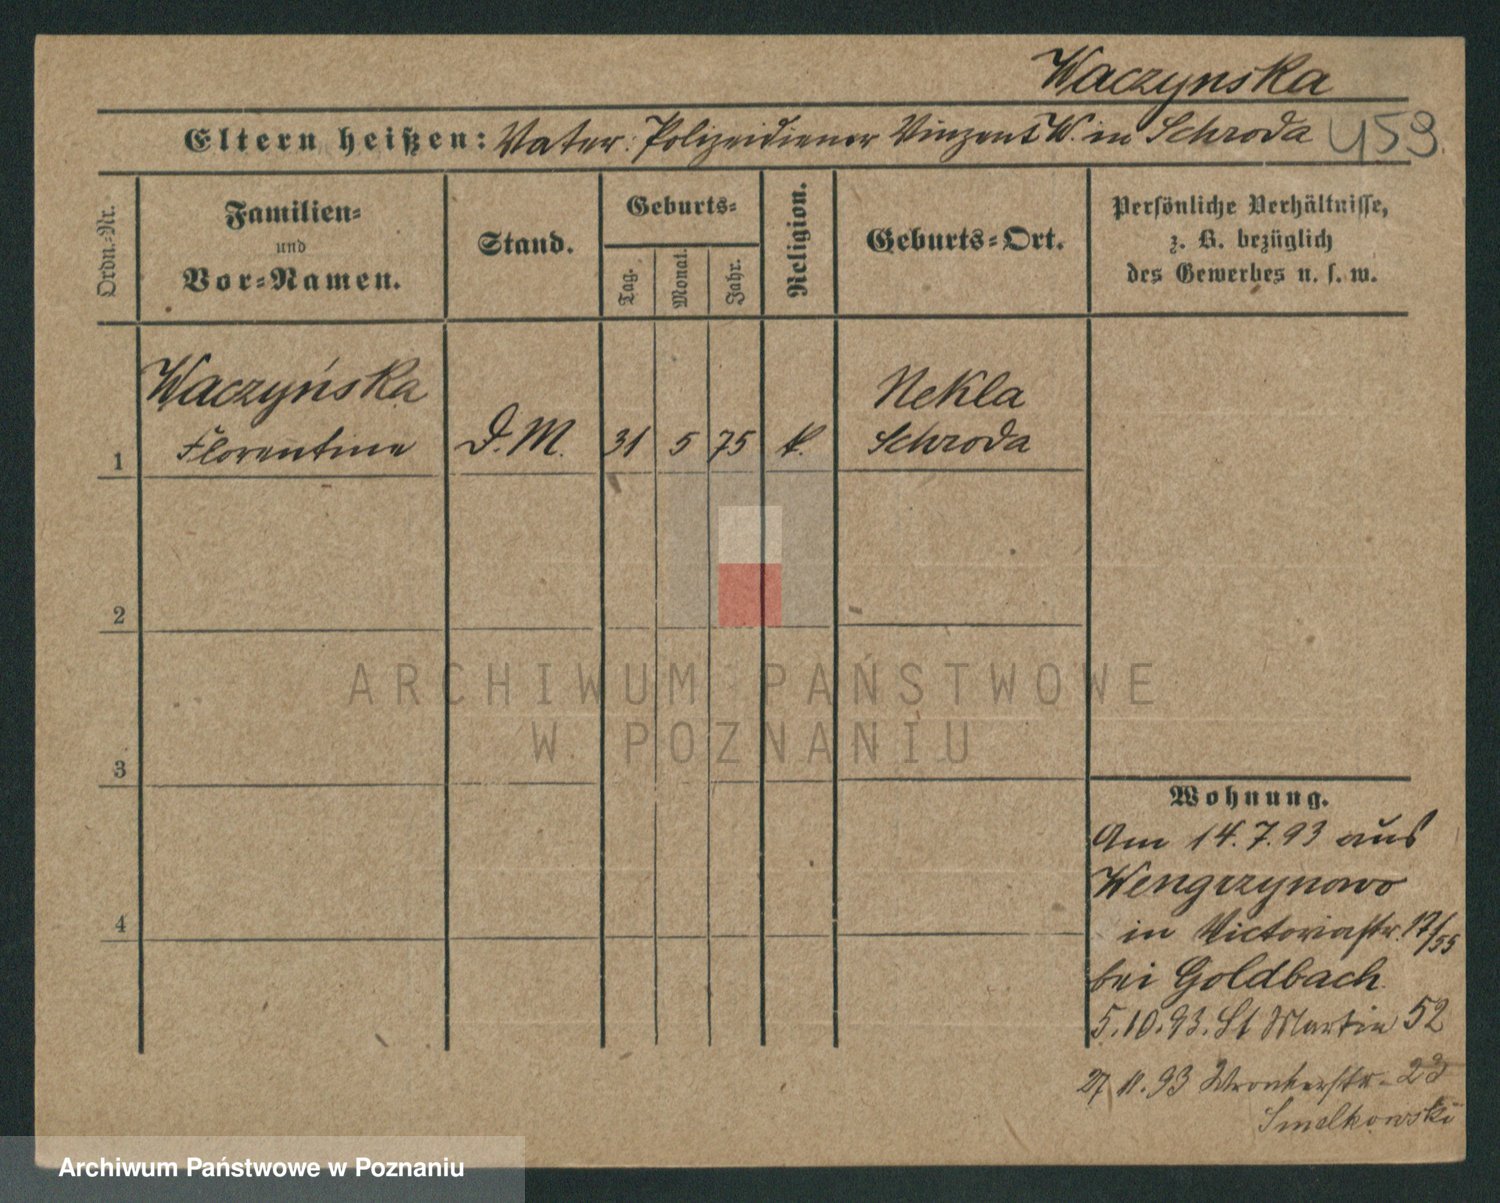 Waczynska
Eltern heißen: Vater: Polizeidiener Vinzent W. in Schroda 459.
Ordn.-Nr.
Familien-
und
Vor-Namen.
Stand.
Geburts-
Tag.
Monat.
Jahr.
Religion.
Geburts-Ort.
Persönliche Verhältnisse,
z. B. bezüglich
des Gewerbes u. s. w.
Waczyńska
Florentine
D. M. 31 5 75 k.
Nekla
Schroda
1
2
3
4
Wohnung.
Am 14.7.93 aus
Wengrzynowo
in Victoriastr. 17/55
bei Goldbach
5.10.93. St Martin 52
27 11.93 Wronkerstr. 23
Smelkowski
ARCHIWUM PAŃSTWOWE
W POZNANIU
Archiwum Państwowe w Poznaniu